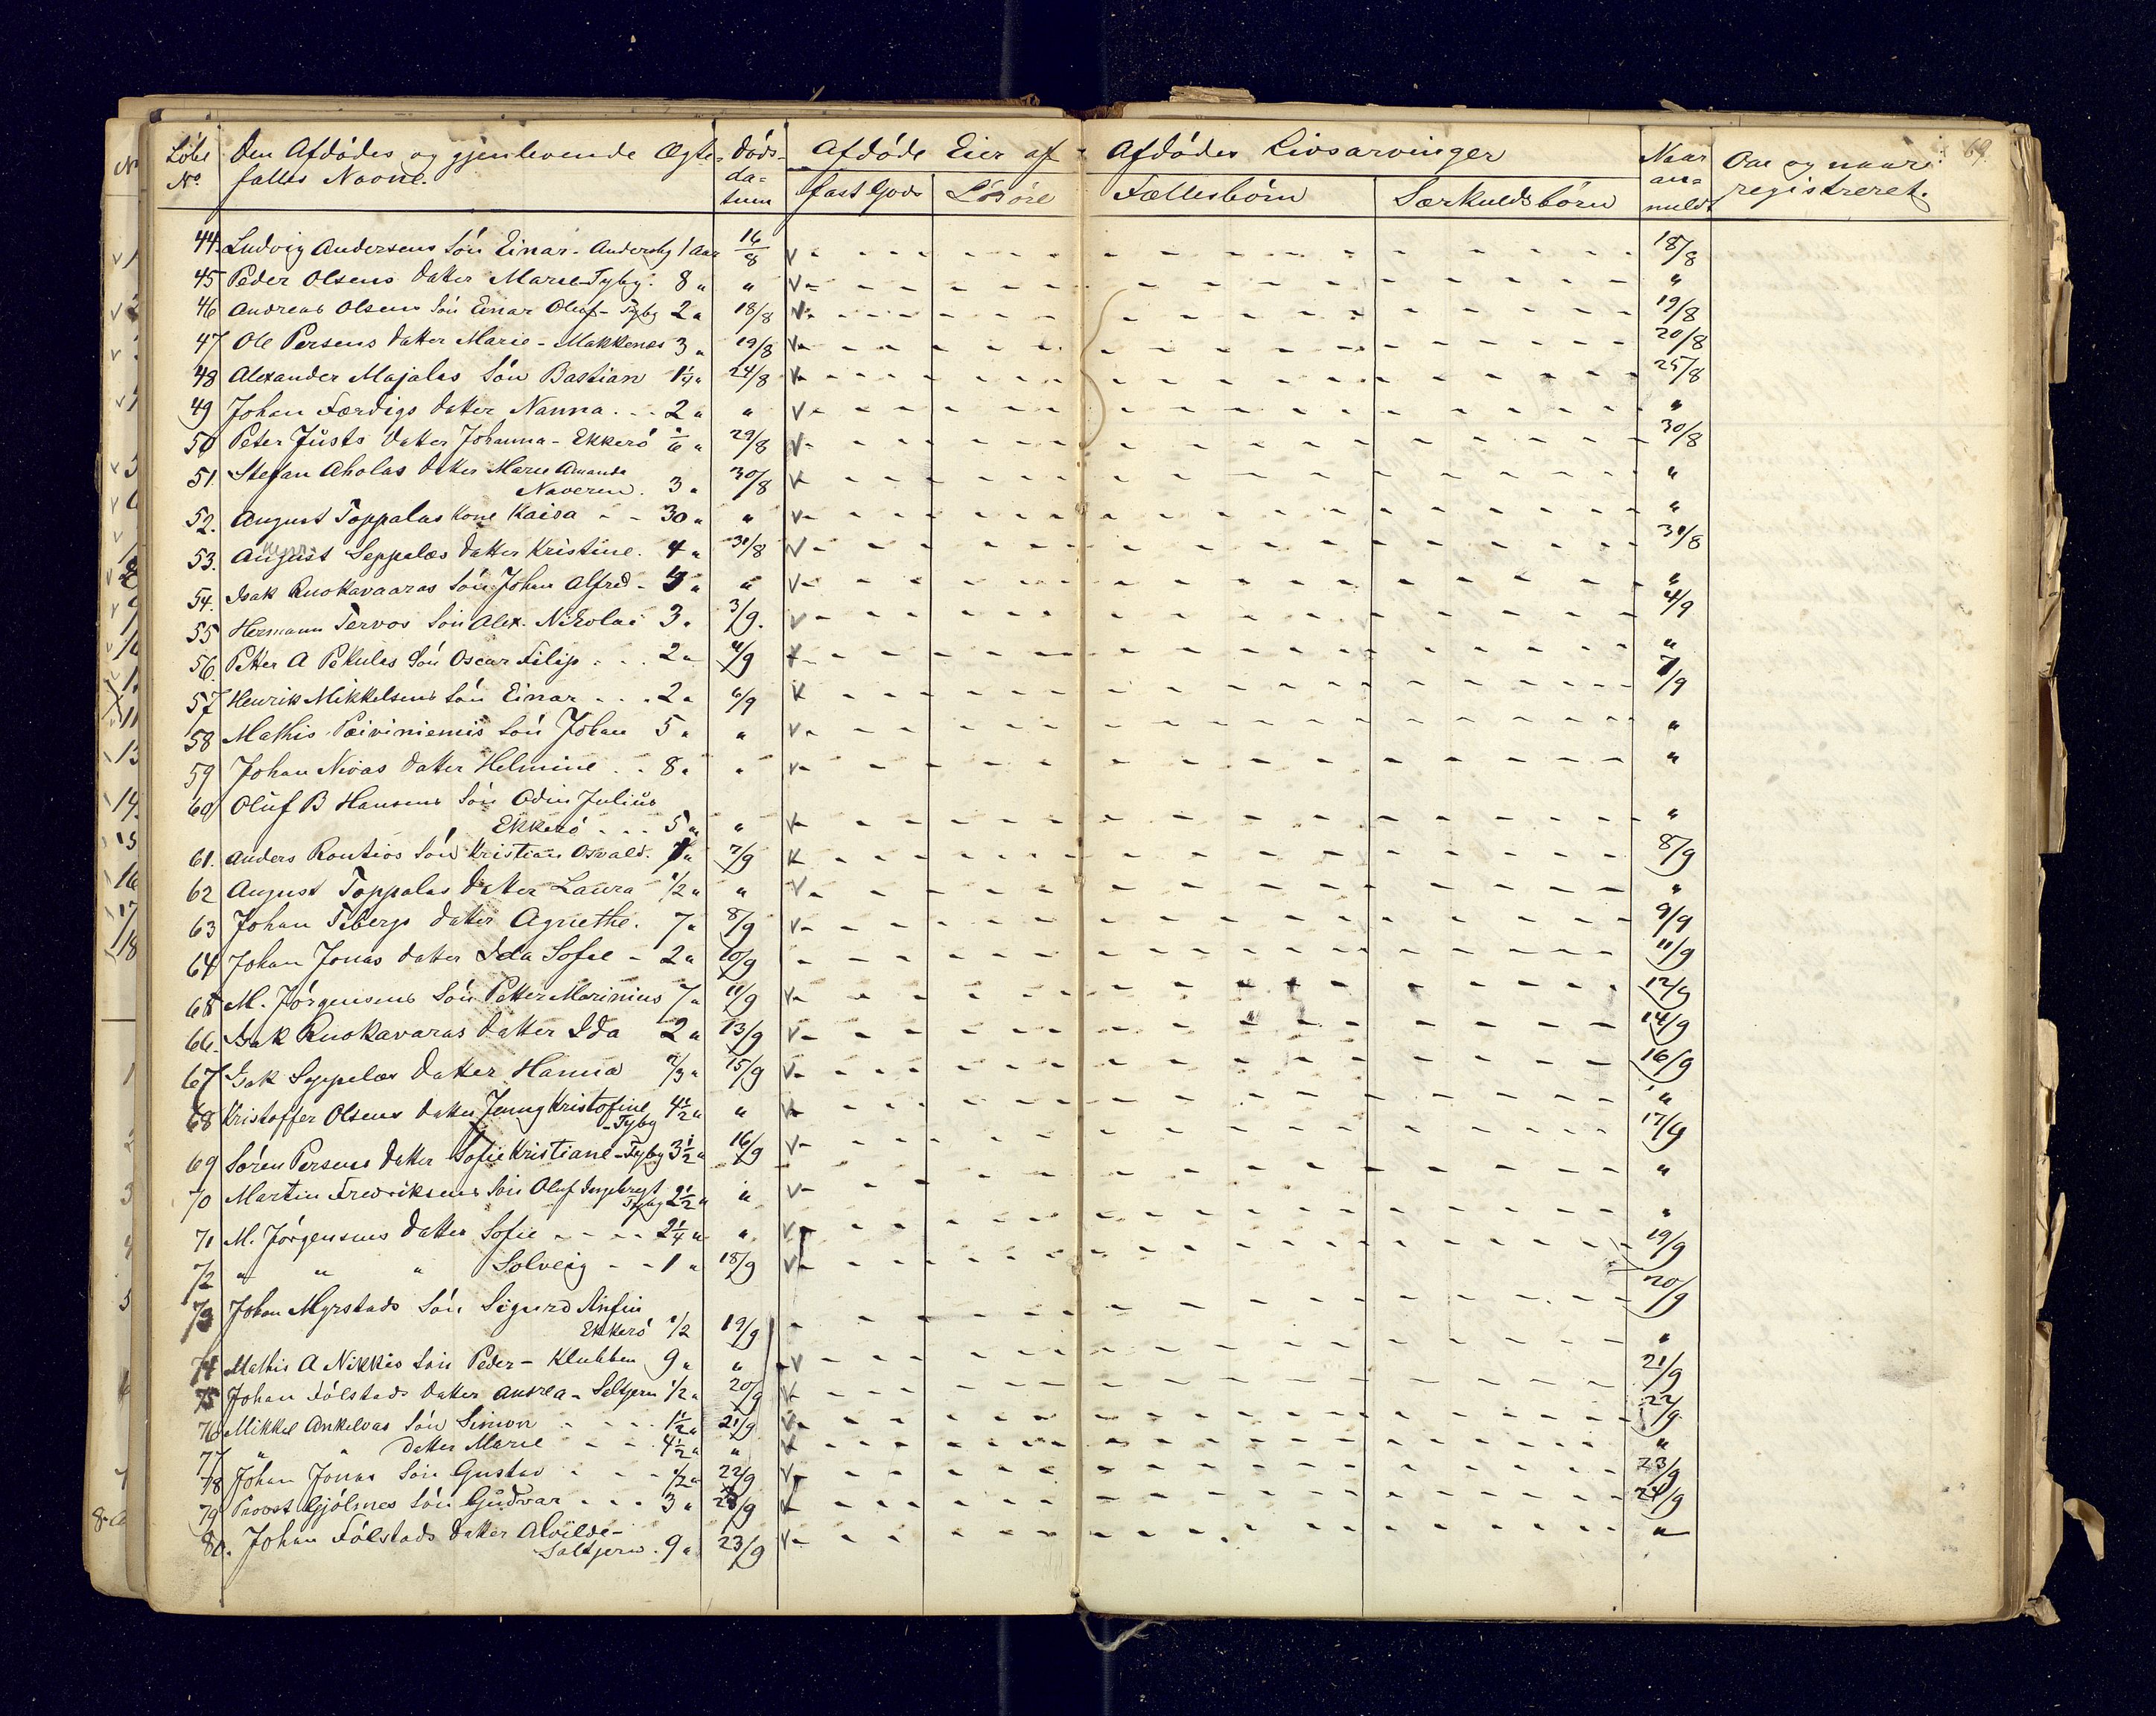 69.
Löbe No. Den Afdödes og gjenlevende Ægtefælles Navne. Döds-datum Afdöde Eier af Afdödes Livsarvinger Naar anmeldt Om og naar registreret.
fast Gods Lösöre Fællesbörn Særkuldsbörn
44. Ludvig Andersens Sön Einar - Andersby 1 Aar 16/8 18/8
45 Peder Olsens Datter Marie - Fyby. 8 " " "
46 Andreas Olsens Sön Einar Oluf - Fyby 2 " 18/8 19/8
47 Ole Persens Datter Marie - Makkenes 3 " 19/8 20/8
48 Alexander Majalas Sön Bastian 1½ " 24/8 25/8
49 Johan Færdigs Datter Nanna 2 " " "
50 Peter Justs Datter Johanna - Ekkerö " 29/8 30/8
51. Stefan Aholas Datter Marie Amanda
Naveren. 3 " 30/8 "
52. August Toppalas Kone Kaisa 30 " " "
53. August Seppalas Datter Kristine. 4 " 31/8 31/8
54. Isak Ruokavaaras Sön Johan Alfred - " " "
55 Hermann Tervos Sön Alex. Nikolai 3 " 3/9. 4/9
56. Petter A Pekulas Sön Oscar Filip 2 " 4/9 "
57 Henrik Mikkelsens Sön Einar 2 " 6/9 7/9
58 Mathis Paiviniemis Sön Johan 5 " " "
59 Johan Nivas Datter Helmine 8 " " "
60 Oluf B Hansens Sön Odin Julius
Ekkerö 5 " " "
61. Anders Rontios Sön Kristian Osvald. 1 " 7/9 8/9
62 August Toppalas Datter Laura 1/2 " " "
63 Johan Tibergs Datter Agnethe. 7 " 8/9 9/9
64 Johan Jonas Datter Ida Sofie - 2 " 10/9 11/9
65 M. Jörgensens Sön Petter Marinius 7 " 11/9 12/9
66. Isak Ruokavaras Datter Ida 2 " 13/9 14/9
67 Isak Seppalas Datter Hanna 2/3 " 15/9 16/9
68 Kristoffer Olsens Datter Jenny Kristofine 4½ " " "
- Fyby
69 Sören Persens Datter Sofie Kristiane - Fyby 3½ " 16/9 17/9
70 Martin Fredriksens Sön Oluf Ingebregt
Fyby 2½ " " "
71 M. Jörgensens Datter Sofie 2¼ " " "
72 " " " Solveig 1 " 18/9 19/9
73 Johan Myrstads Sön Sigurd Anfin
Ekkerö 1/2 19/9 20/9
74 Mathis A Nikkis Sön Peder - Klubben 9 " " "
75 Johan Fölstads Datter Andrea - Saltjern 1/2 " 20/9 21/9
76 Mikkel Ankelvas Sön Simon 1½ " 21/9 22/9
77 " " Datter Marie 4½ " " "
78 Johan Jonas Sön Gustav 1/2 " 22/9 23/9
79 Provst Gjölmes Sön Gudvar 3 " 23/9 24/9
80. Johan Fölstads Datter Alvilde -
Saltjern. 9 " 23/9 "